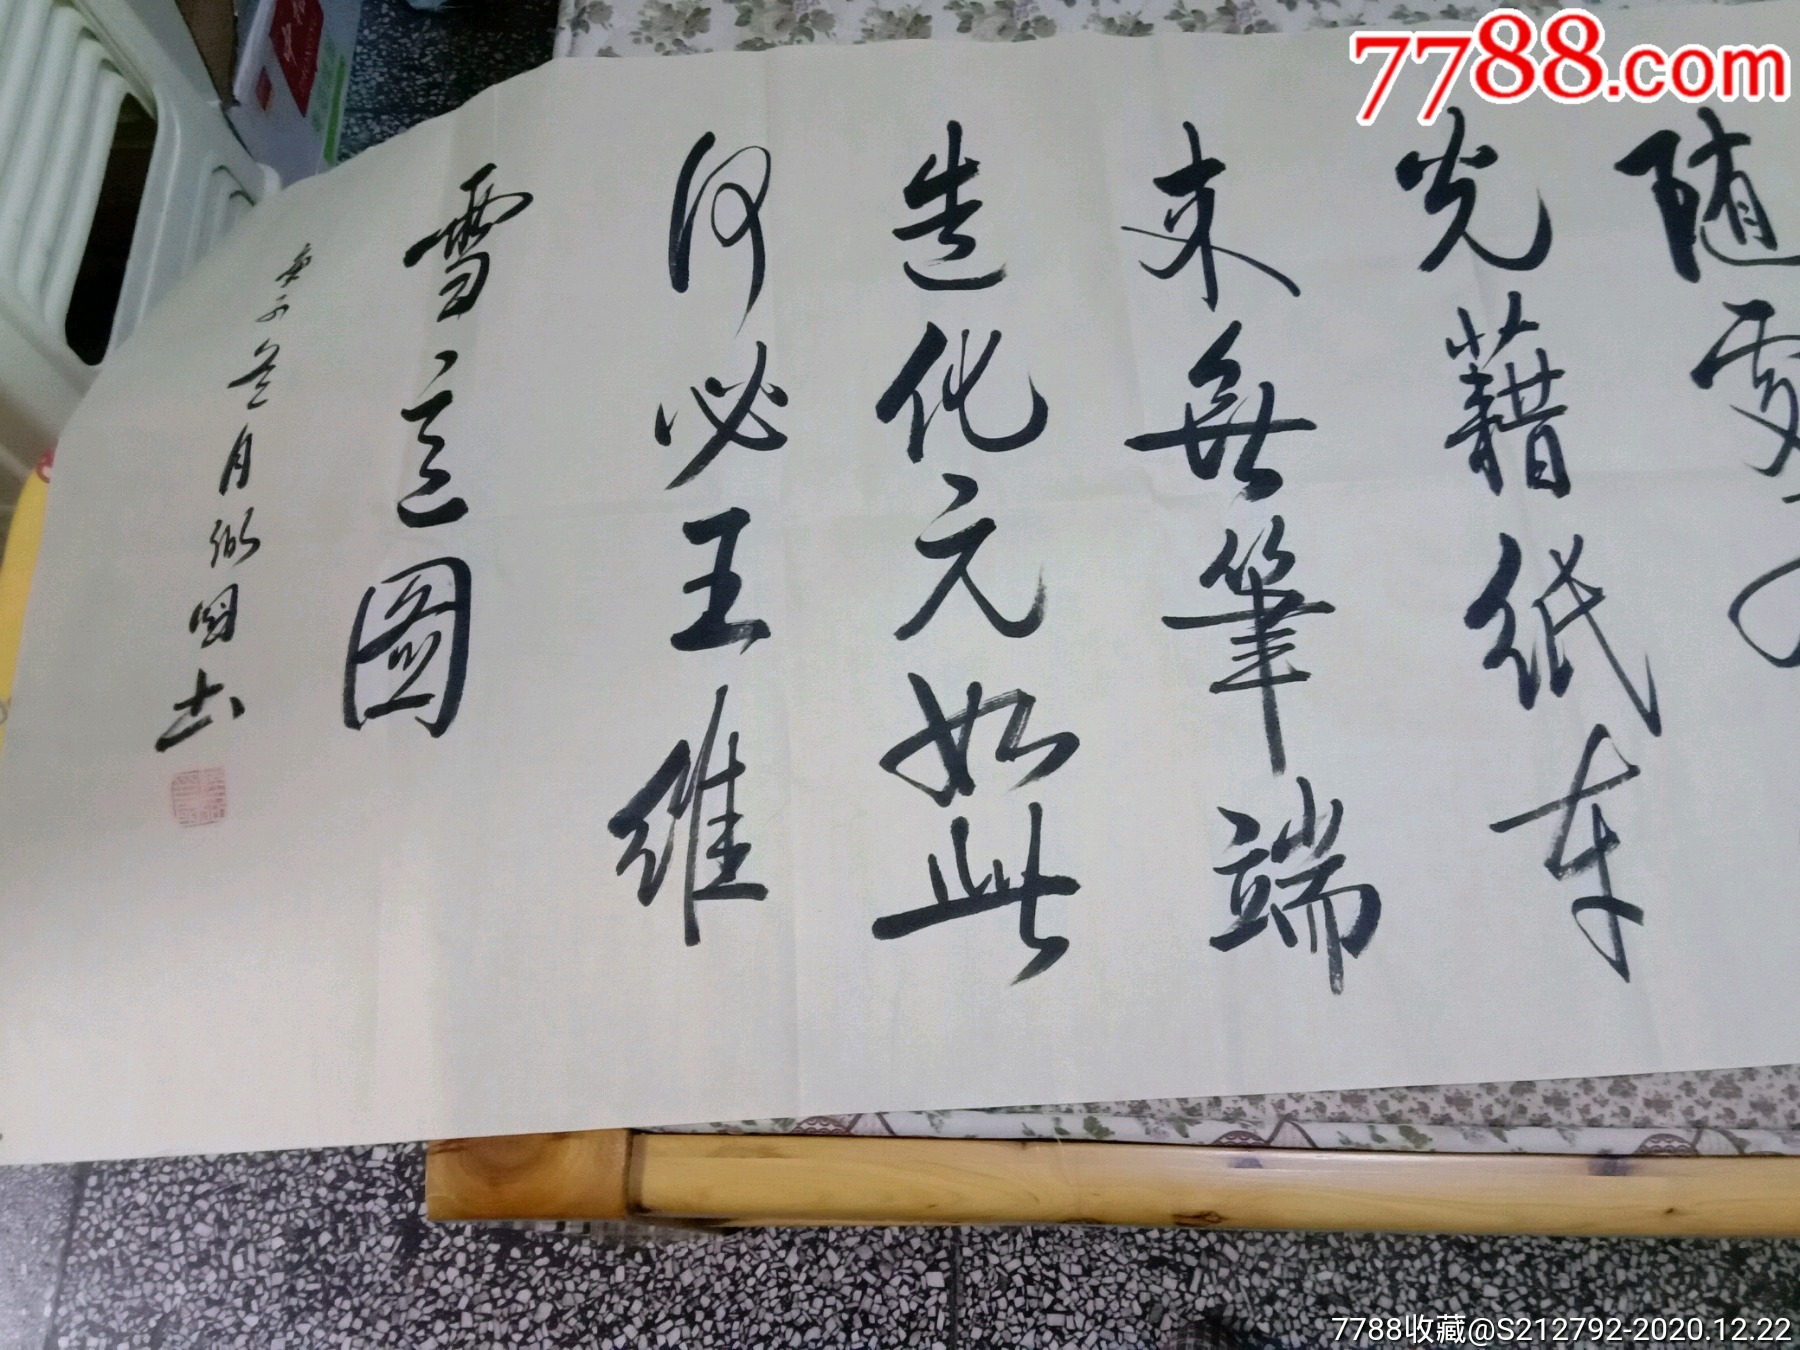 7788.com
随處
光藉紙本
来無筆端
造化元如此
何必王維
雪意圖
庚子冬月
7788收藏@S212792-2020.12.22